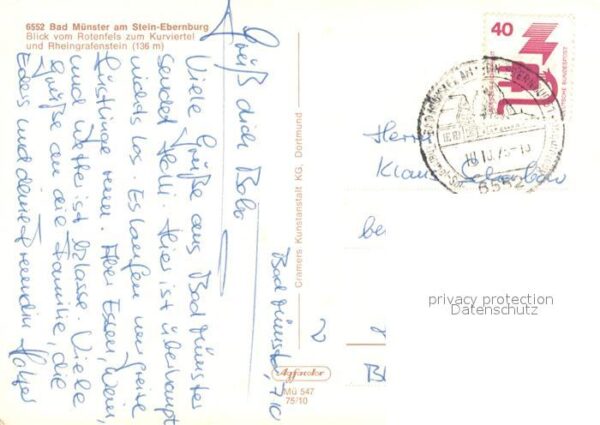 6552 Bad Münster am Stein-Ebernburg
Blick vom Rotenfels zum Kurviertel
und Rheingrafenstein (136 m)
Bad Münster, 7.10
Grüß dich Bobo
Viele Grüße aus Bad Münster
sendet Helli. Hier ist überhaupt
nichts los. Es laufen nur Greise
Lüstlinge rum. Aber Essen, Wein,
und Wetter ist Klasse. Viele
Grüße an die Familie, die
Edeis und deine Freundin
Cramers Kunstanstalt KG. Dortmund
Agfacolor
Mü 547
75/10
40
DEUTSCHE BUNDESPOST
10.75-10
6552
Herrn
Klaus
be
privacy protection
Datenschutz